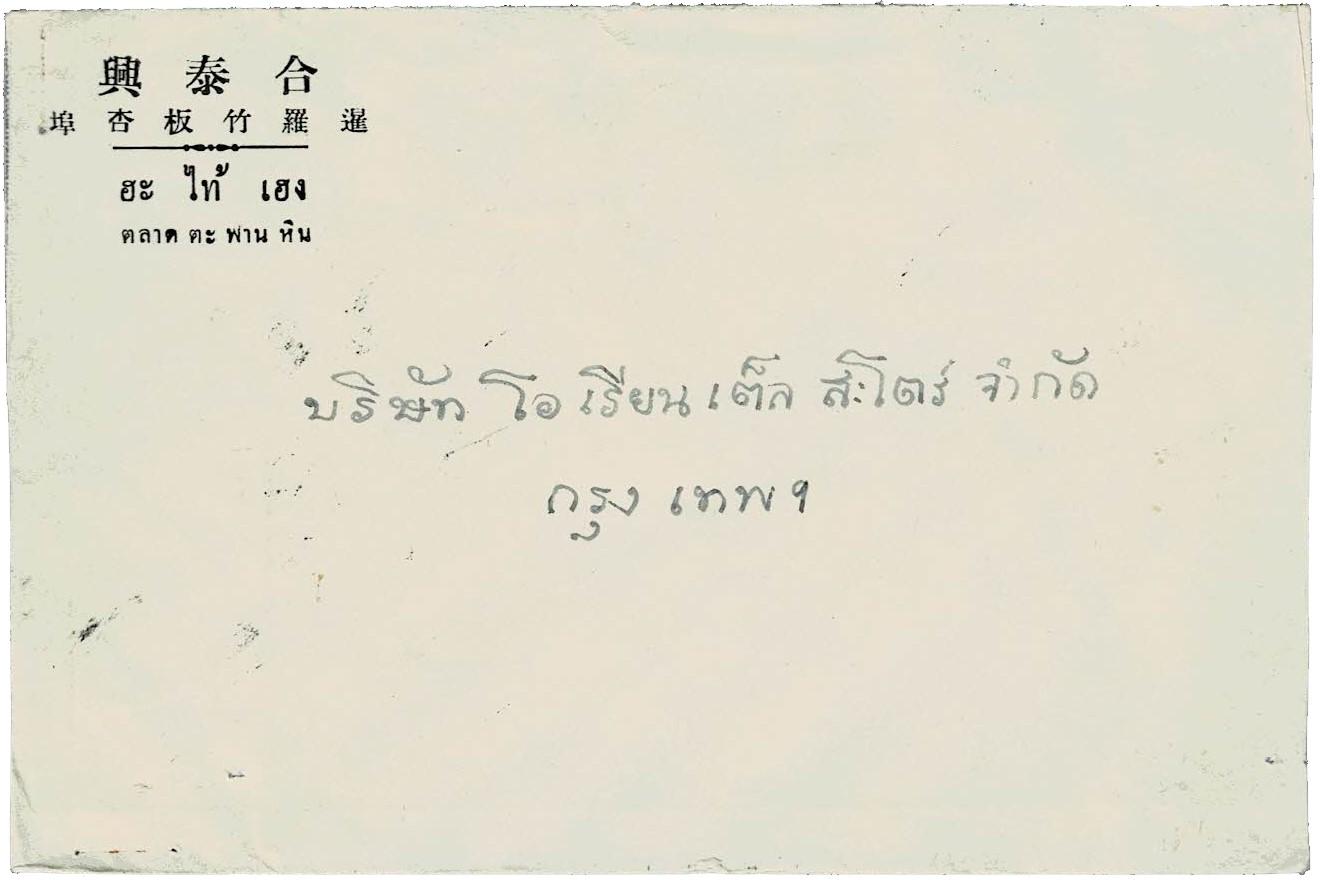 合泰興
暹羅竹板杏埠
ฮะ ไท้ เฮง
ตลาด ตะ พาน หิน
บริษัท โอเรียนเต็ล สะโตร์ จำกัด
กรุง เทพ ฯ